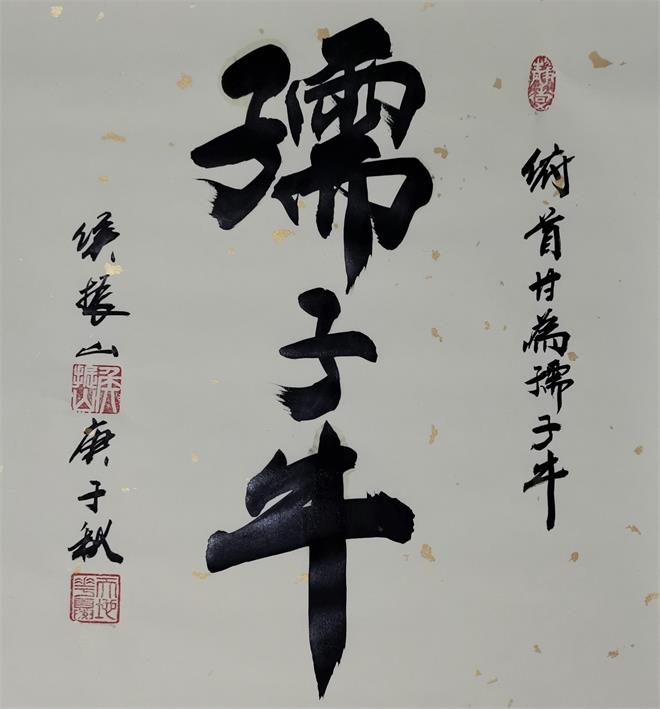 俯首甘為孺子牛
孺子牛
侯振山
庚子秋